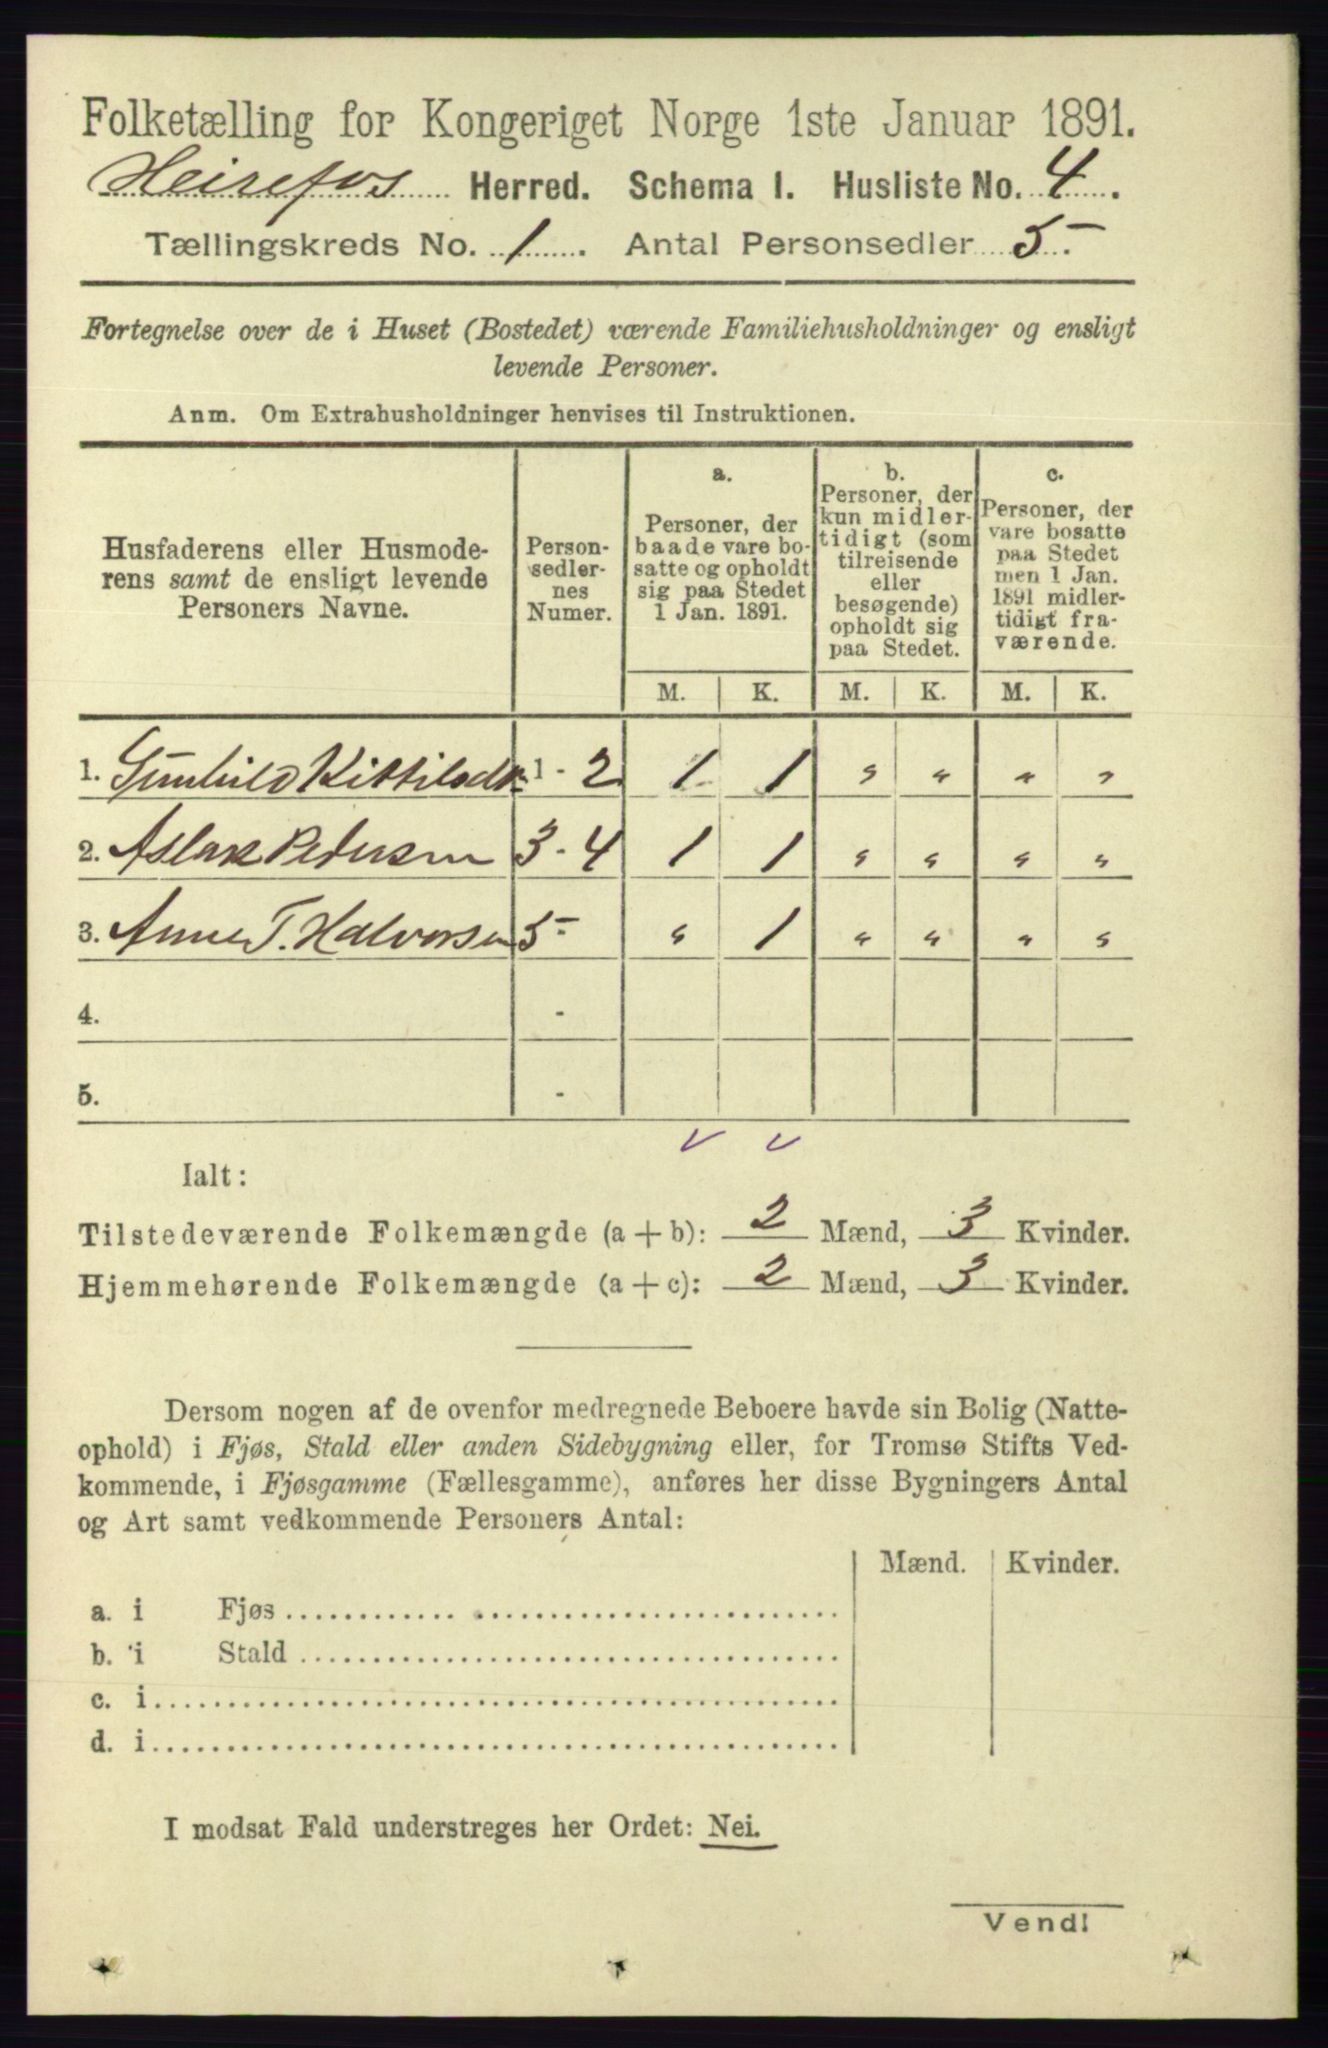 Folketælling for Kongeriget Norge 1ste Januar 1891.
Heirefos Herred. Schema I. Husliste No. 4.
Tællingskreds No. 1. Antal Personsedler 5.
Fortegnelse over de i Huset (Bostedet) værende Familiehusholdninger og ensligt
levende Personer.
Anm. Om Extrahusholdninger henvises til Instruktionen.
Husfaderens eller Husmode-
rens samt de ensligt levende
Personers Navne.
Person-
sedler-
nes
Numer.
a.
Personer, der
baade vare bo-
satte og opholdt
sig paa Stedet
1 Jan. 1891.
b.
Personer, der
kun midler-
tidigt (som
tilreisende
eller
besøgende)
opholdt sig
paa Stedet.
c.
Personer, der
vare bosatte
paa Stedet
men 1 Jan.
1891 midler-
tidigt fra-
værende.
M. K. M. K. M. K.
1. Gunhild Kittilsdtr. 1 - 2 1 1 " " " "
2. Aslak Pedersen 3 - 4 1 1 " " " "
3. Anne T. Halvorsen 5 - " 1 " " " "
4. -
5. -
Ialt:
Tilstedeværende Folkemængde (a + b): 2 Mænd, 3 Kvinder.
Hjemmehørende Folkemængde (a + c): 2 Mænd, 3 Kvinder.
Dersom nogen af de ovenfor medregnede Beboere havde sin Bolig (Natte-
ophold) i Fjøs, Stald eller anden Sidebygning eller, for Tromsø Stifts Ved-
kommende, i Fjøsgamme (Fællesgamme), anføres her disse Bygningers Antal
og Art samt vedkommende Personers Antal:
Mænd. Kvinder.
a. i Fjøs
b. i Stald
c. i
d. i
I modsat Fald understreges her Ordet: Nei.
Vend!